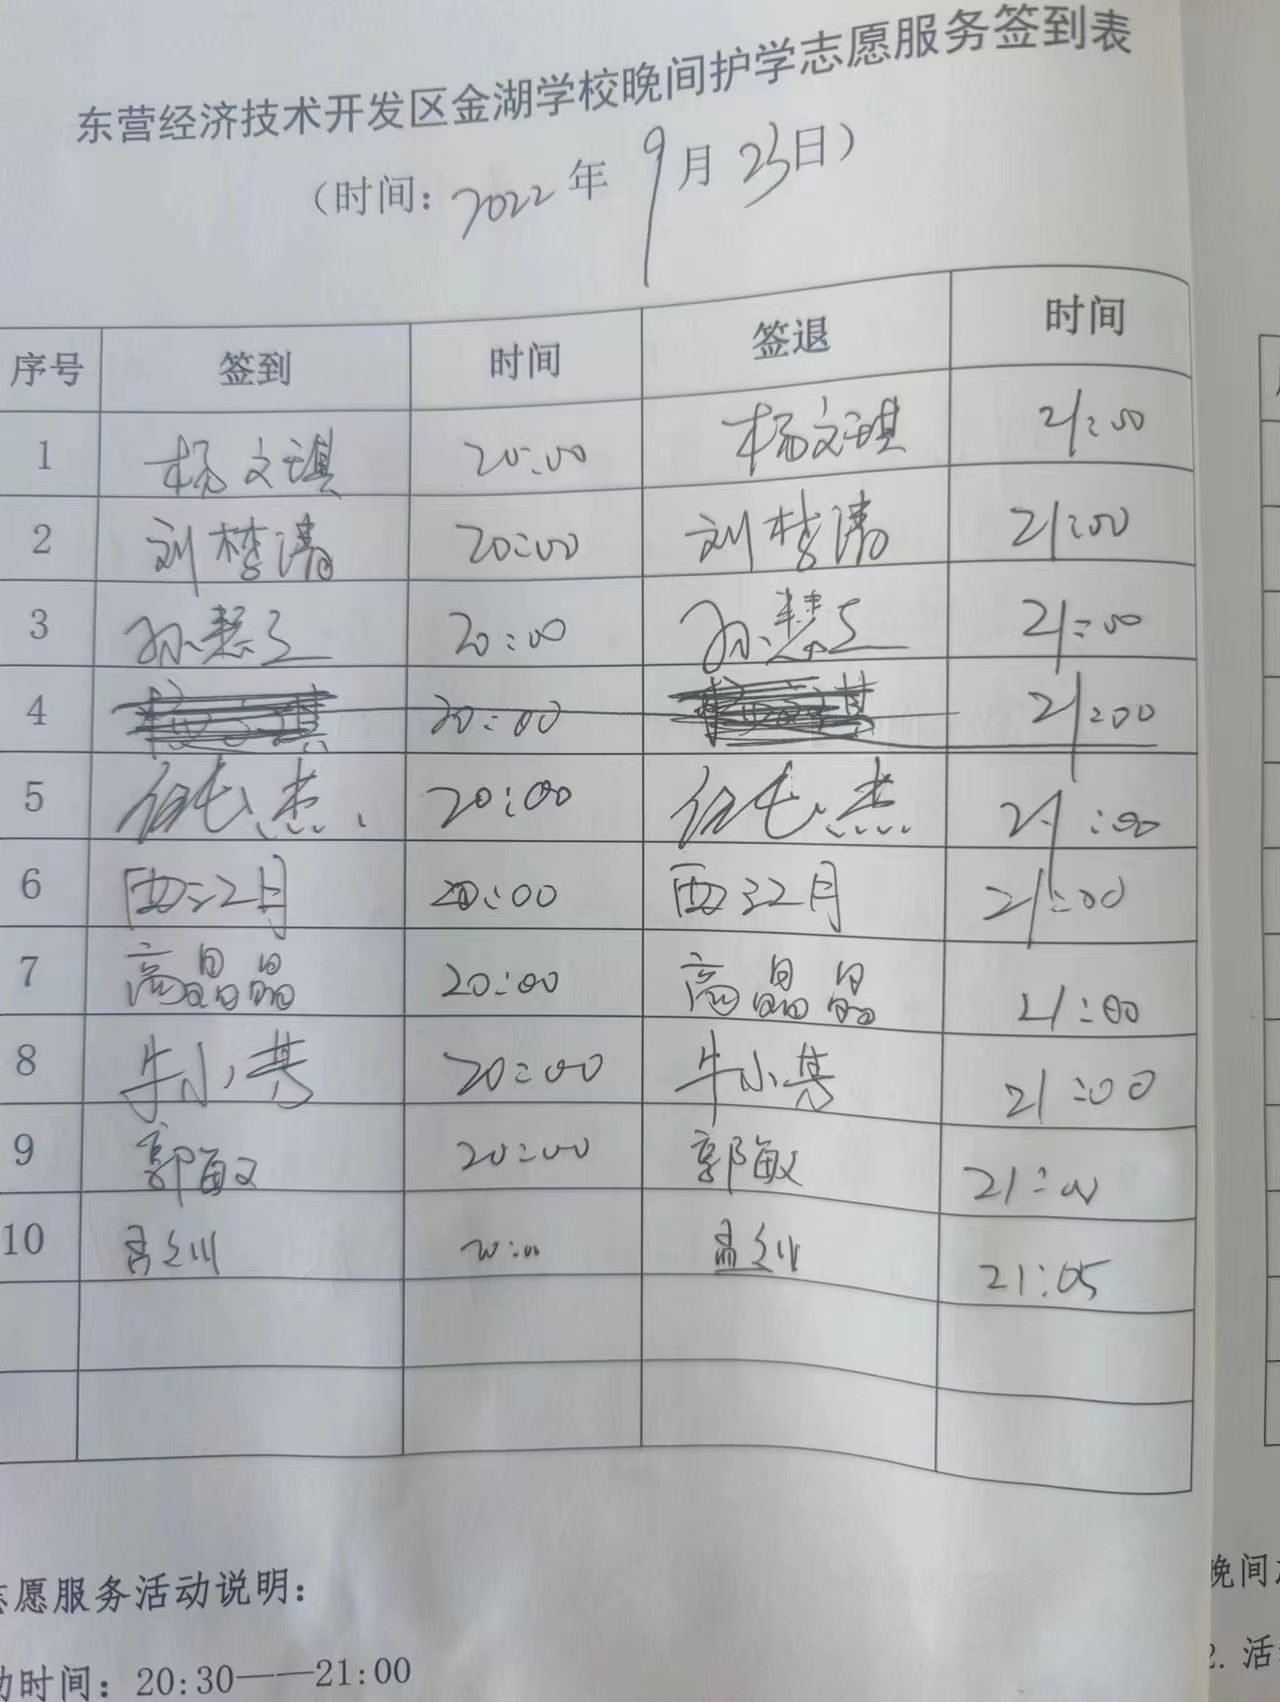 东营经济技术开发区金湖学校晚间护学志愿服务签到表
（时间：2022年9月23日）
序号 签到 时间 签退 时间
1 杨文琪 20:00 杨文琪 21:00
2 刘梦涛 20:00 刘梦涛 21:00
3 孙慧 20:00 孙慧 21:00
4 20:00 21:00
5 杰 20:00 杰 21:00
6 20:00 21:00
7 高晶晶 20:00 高晶晶 21:00
8 牛小芸 20:00 牛小芸 21:00
9 郭敏 20:00 郭敏 21:00
10 20:00 21:05
志愿服务活动说明：
动时间：20:30——21:00
晚间
2. 活